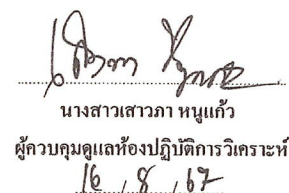 นางสาวเสาวภา หนูแก้ว
ผู้ควบคุมดูแลห้องปฏิบัติการวิเคราะห์
16 / 8 / 67